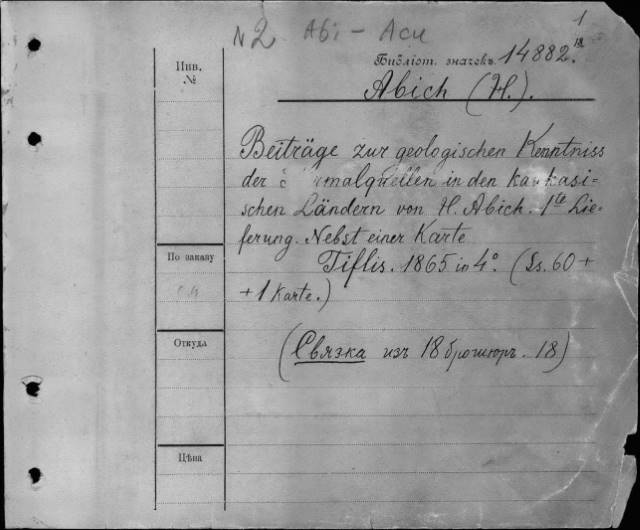 1
N 2 Abi - Acu
Инв.
№
Библіот. значекъ 14882.18
Abich (H.).
Beiträge zur geologischen Kenntniss
der Thermalquellen in den Kaukasi=
schen Ländern von H. Abich. 1te Lie=
ferung. Nebst einer Karte
Tiflis. 1865 in 4°. (Ss. 60 +
+ 1 Karte.)
По заказу
Откуда
(Связка изъ 18 брошюръ. 18)
Цѣна